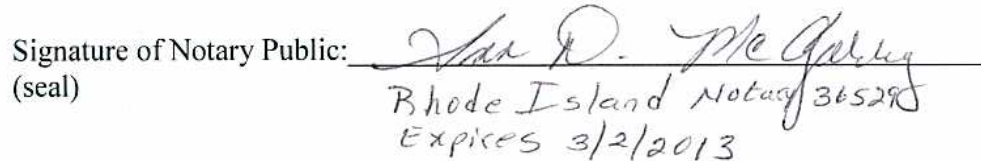 Signature of Notary Public: D. Mc
(seal)
Rhode Island Notary
Expires 3/2/2013